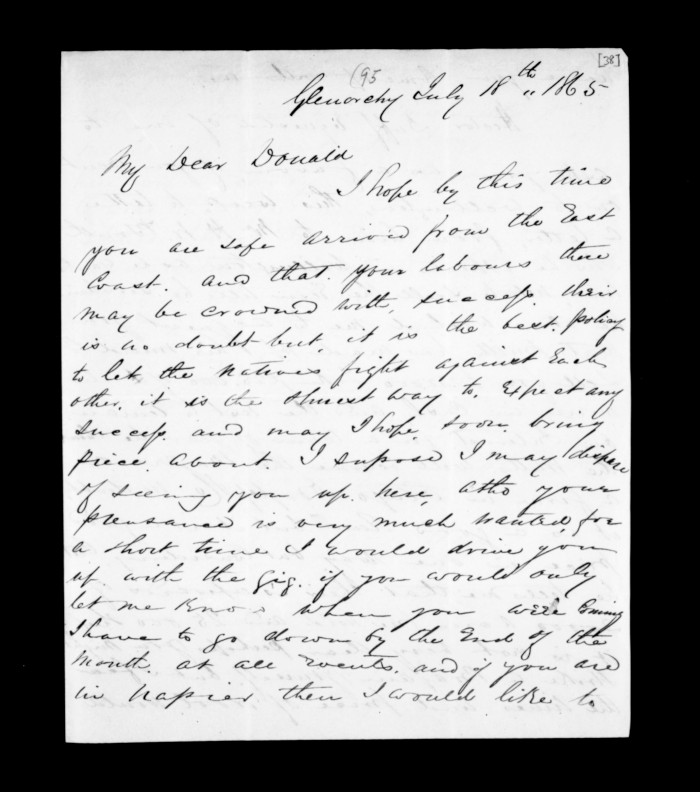 [38]
(95
Glenorchy July 18th " 1865
My Dear Donald
I hope by this time
you are safe arrived from the East
Coast. and that your labours there
may be crowned with success. their
is no doubt but, it is the best policy
to let the natives fight against Each
other. it is the shurest way to. Expect any
success. and may I hope soon bring
piece about. I supose I may dispare
of seeing you up here, altho your
preasance is very much wanted for
a short time I would drive you
up with the gig. if you would only
let me know when you were Coming
I have to go down by the End of the
month. at all events. and if you are
in Napier then I would like to